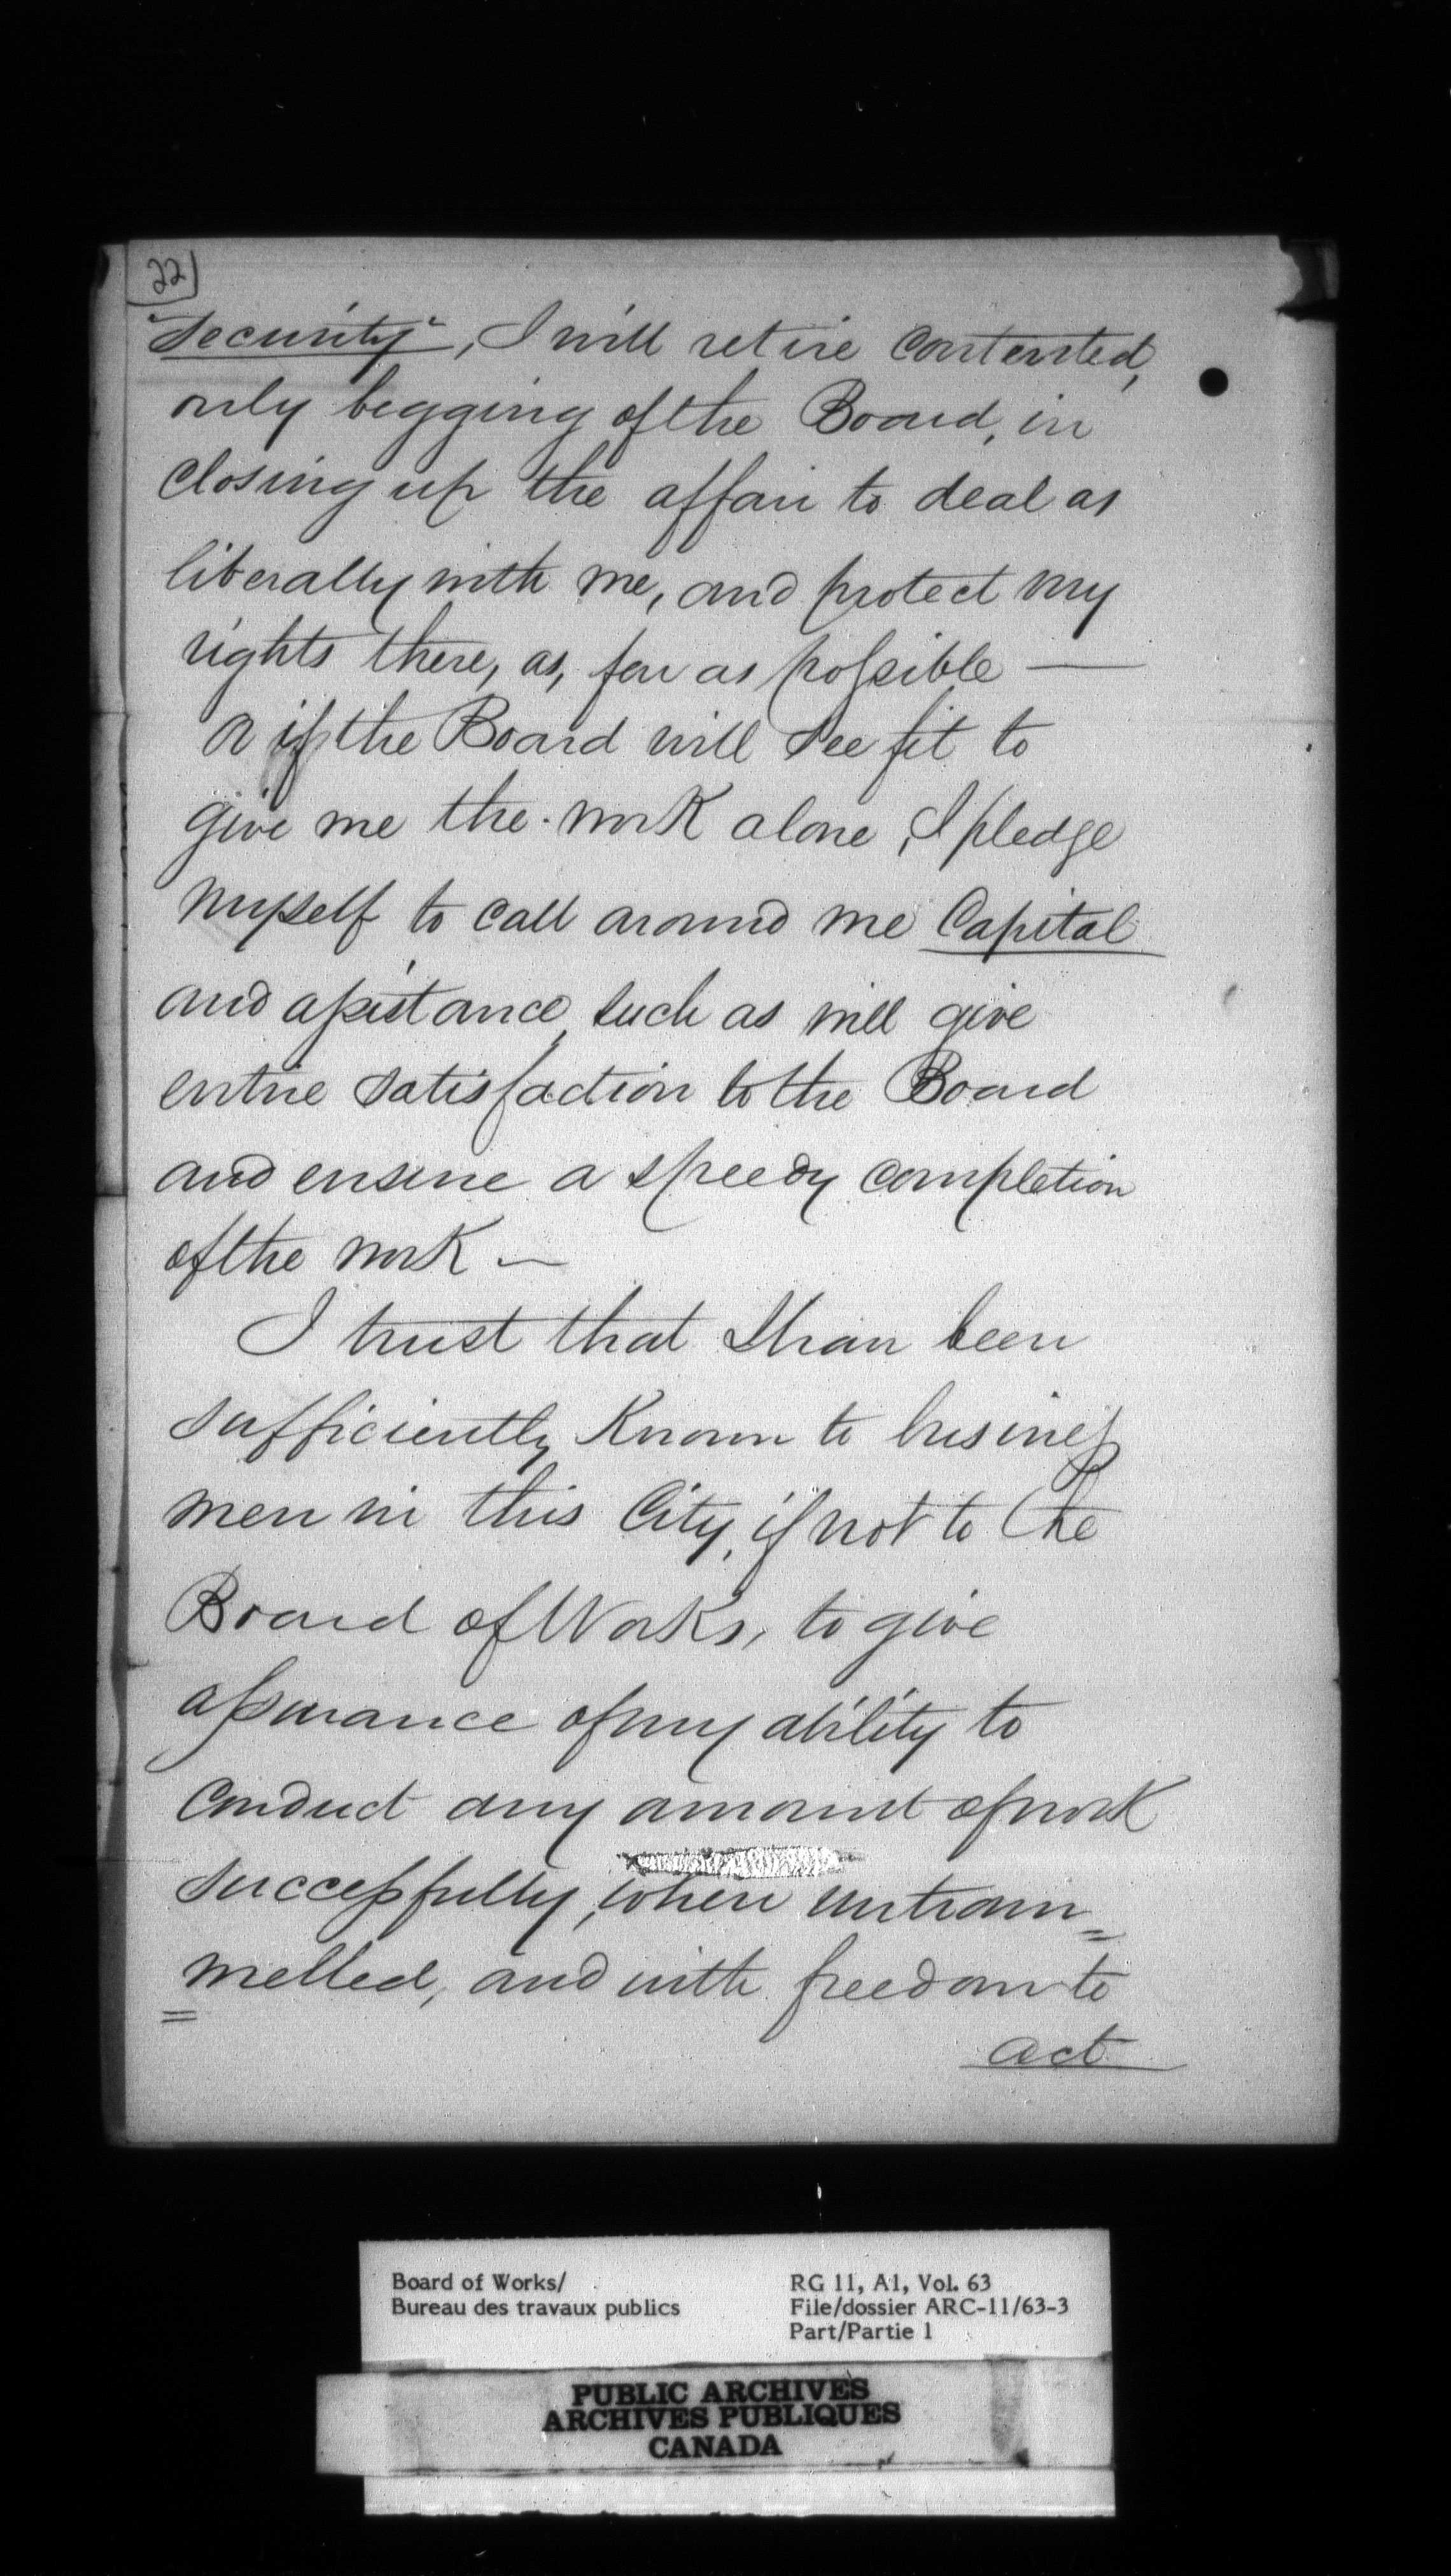 22
"Security", I will retire contented,
only begging of the Board, in
closing up the affair to deal as
liberally with me, and protect my
rights there, as, far as possible —
Or if the Board will see fit to
give me the work alone, I pledge
myself to call around me Capital
and assistance, such as will give
entire satisfaction to the Board
and ensure a speedy completion
of the work —
I trust that I have been
sufficiently Known to business
men in this City, if not to the
Board of Works, to give
assurance of my ability to
conduct any amount of work
successfully, when untram=
=melled, and with freedom to
act
Board of Works/
Bureau des travaux publics
RG 11, A1, Vol. 63
File/dossier ARC-11/63-3
Part/Partie 1
PUBLIC ARCHIVES
ARCHIVES PUBLIQUES
CANADA